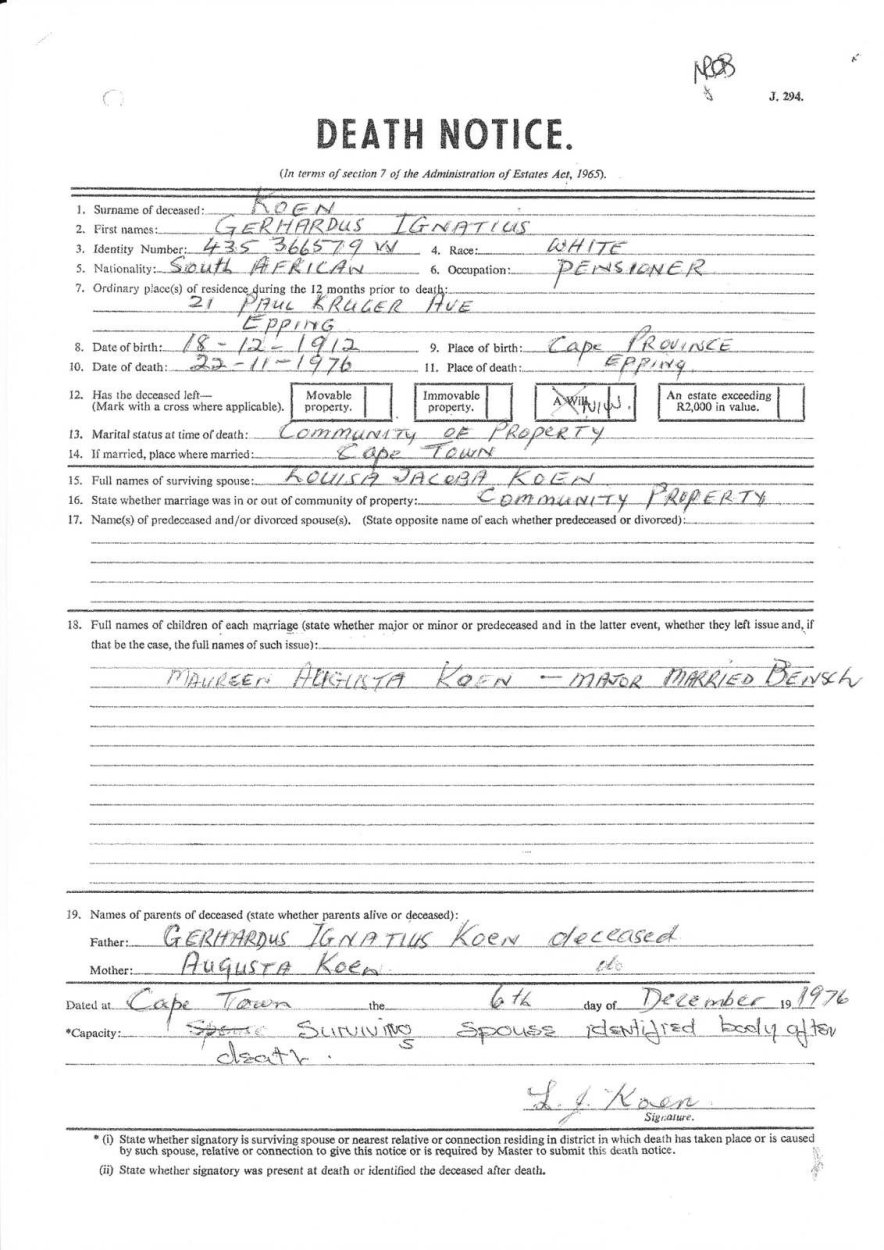 J. 294.
DEATH NOTICE.
(In terms of section 7 of the Administration of Estates Act, 1965).
1. Surname of deceased: KOEN
2. First names: GERHARDUS IGNATIUS
3. Identity Number: 435 366579 W 4. Race: WHITE
5. Nationality: SOUTH AFRICAN 6. Occupation: PENSIONER
7. Ordinary place(s) of residence during the 12 months prior to death:
21 PAUL KRUGER AVE
EPPING
8. Date of birth: 18-12-1912 9. Place of birth: Cape PROVINCE
10. Date of death: 22-11-1976 11. Place of death: EPPING
12. Has the deceased left— (Mark with a cross where applicable). Movable property. Immovable property. A Will An estate exceeding R2,000 in value.
13. Marital status at time of death: COMMUNITY OF PROPERTY
14. If married, place where married: Cape TOWN
15. Full names of surviving spouse: LOUISA JACOBA KOEN
16. State whether marriage was in or out of community of property: COMMUNITY PROPERTY
17. Name(s) of predeceased and/or divorced spouse(s). (State opposite name of each whether predeceased or divorced):
18. Full names of children of each marriage (state whether major or minor or predeceased and in the latter event, whether they left issue and, if
that be the case, the full names of such issue):
MAUREEN AUGUSTA KOEN — MAJOR MARRIED BENSCH
19. Names of parents of deceased (state whether parents alive or deceased):
Father: GERHARDUS IGNATIUS KOEN deceased
Mother: AUGUSTA KOEN do
Dated at Cape Town the 6th day of December 1976
*Capacity: Surviving Spouse identified body after
death.
L. J. Koen
Signature.
* (i) State whether signatory is surviving spouse or nearest relative or connection residing in district in which death has taken place or is caused
by such spouse, relative or connection to give this notice or is required by Master to submit this death notice.
(ii) State whether signatory was present at death or identified the deceased after death.